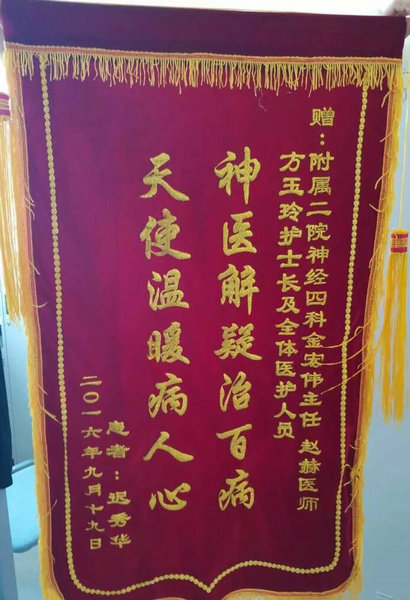 赠：附属二院神经四科金宏伟主任 赵赫医师
方玉玲护士长及全体医护人员
神医解疑治百病
天使温暖病人心
患者：迟秀华
二〇一六年九月十九日